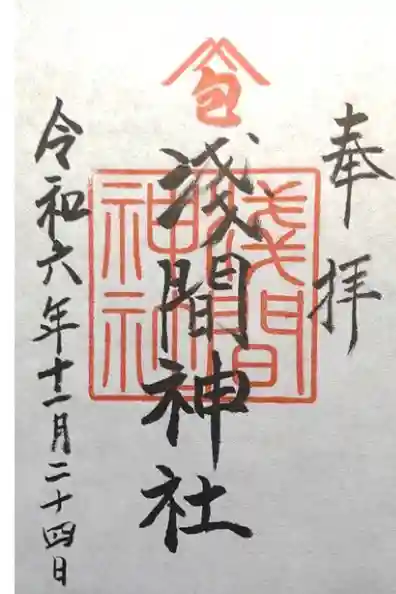 奉拝
浅間神社
浅間神社
令和六年十一月二十四日